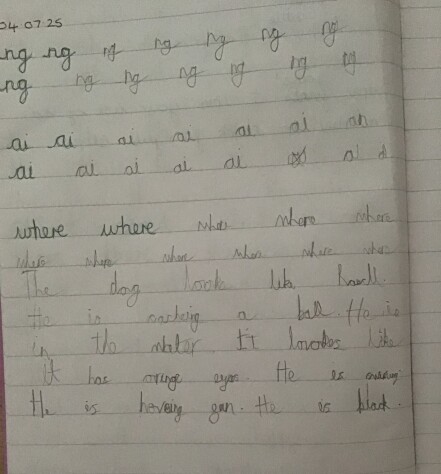 04 07 25
ng ng ng ng ng ng ng
ng ng ng ng ng ng ng
ai ai ai ai ai ai an
ai ai ai ai ai ai d
where where where where where
where where where where where where
The dog look like
He is a ball. He is
in the water. It like
it has oringe eyes. He is
He is haveing gun. He is black.